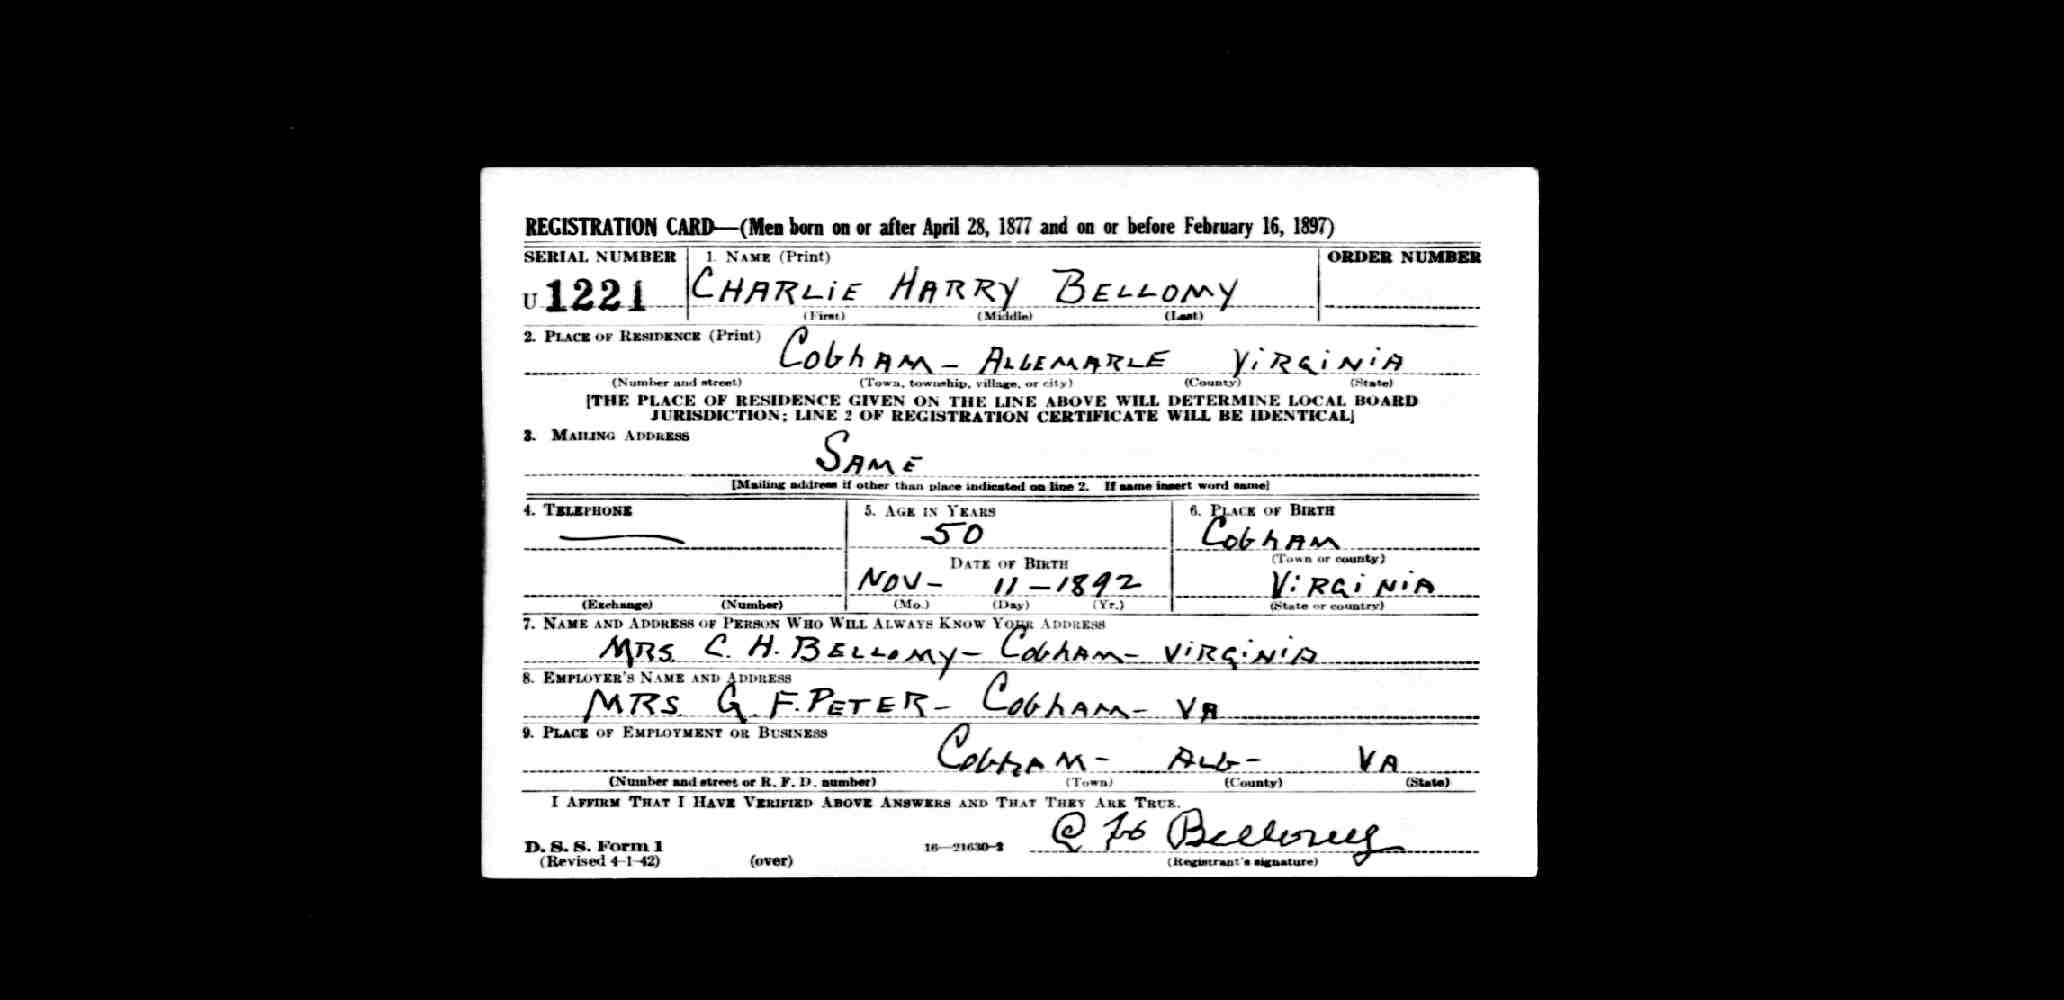 REGISTRATION CARD—(Men born on or after April 28, 1877 and on or before February 16, 1897)
SERIAL NUMBER 1. NAME (Print) ORDER NUMBER
U 1221 CHARLIE HARRY BELLOMY
(First) (Middle) (Last)
2. PLACE OF RESIDENCE (Print)
COBHAM - ALBEMARLE VIRGINIA
(Number and street) (Town, township, village, or city) (County) (State)
[THE PLACE OF RESIDENCE GIVEN ON THE LINE ABOVE WILL DETERMINE LOCAL BOARD
JURISDICTION; LINE 2 OF REGISTRATION CERTIFICATE WILL BE IDENTICAL]
3. MAILING ADDRESS
SAME
[Mailing address if other than place indicated on line 2. If same insert word same]
4. TELEPHONE 5. AGE IN YEARS 6. PLACE OF BIRTH
50 COBHAM
DATE OF BIRTH (Town or county)
NOV - 11 - 1892 VIRGINIA
(Exchange) (Number) (Mo.) (Day) (Yr.) (State or country)
7. NAME AND ADDRESS OF PERSON WHO WILL ALWAYS KNOW YOUR ADDRESS
MRS. C. H. BELLOMY - COBHAM - VIRGINIA
8. EMPLOYER'S NAME AND ADDRESS
MRS. G. F. PETER - COBHAM - VA
9. PLACE OF EMPLOYMENT OR BUSINESS
COBHAM - ALB - VA
(Number and street or R. F. D. number) (Town) (County) (State)
I AFFIRM THAT I HAVE VERIFIED ABOVE ANSWERS AND THAT THEY ARE TRUE.
C H Bellomy
D. S. S. Form 1 16—21630-2
(Revised 4-1-42) (over) (Registrant's signature)